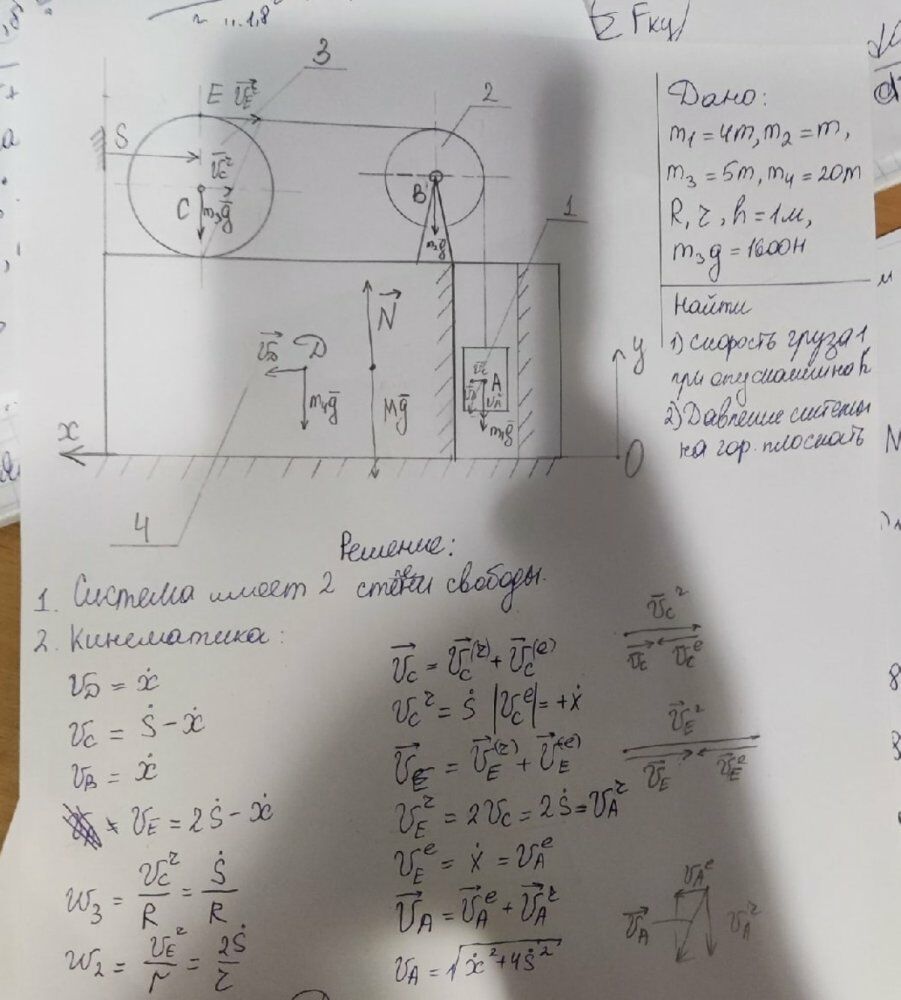 2 .. 1,8
Σ Fку
3
E v⃗_E^r
2
S
v⃗_C^r
C
m₃g̅
B
m₂g̅
1
N⃗
v⃗_D D
m₄g̅
Mg̅
A
m₁g̅
y
x
O
4
Дано:
m₁ = 4m, m₂ = m,
m₃ = 5m, m₄ = 20m
R, r, h = 1м,
m₃g = 1600Н
Найти
1) скорость груза 1
при опускании на h
2) Давление системы
на гор. плоскость
Решение:
1. Система имеет 2 степени свободы.
2. Кинематика:
v_D = ẋ
v_C = Ṡ - ẋ
v_B = ẋ
v_E = 2Ṡ - ẋ
ω₃ = v_C^r / R = Ṡ / R
ω₂ = v_E^r / r = 2Ṡ / r
v⃗_C = v⃗_C^(r) + v⃗_C^(e)
v_C^r = Ṡ |v_C^e| = +ẋ
v⃗_E = v⃗_E^(r) + v⃗_E^(e)
v_E^r = 2v_C = 2Ṡ = v_A^r
v_E^e = ẋ = v_A^e
v⃗_A = v⃗_A^e + v⃗_A^r
v_A = √(ẋ² + 4Ṡ²)
v⃗_C^r
v⃗_C v⃗_C^e
v⃗_E^r
v⃗_E v⃗_E^e
v_A^e
v⃗_A v_A^r